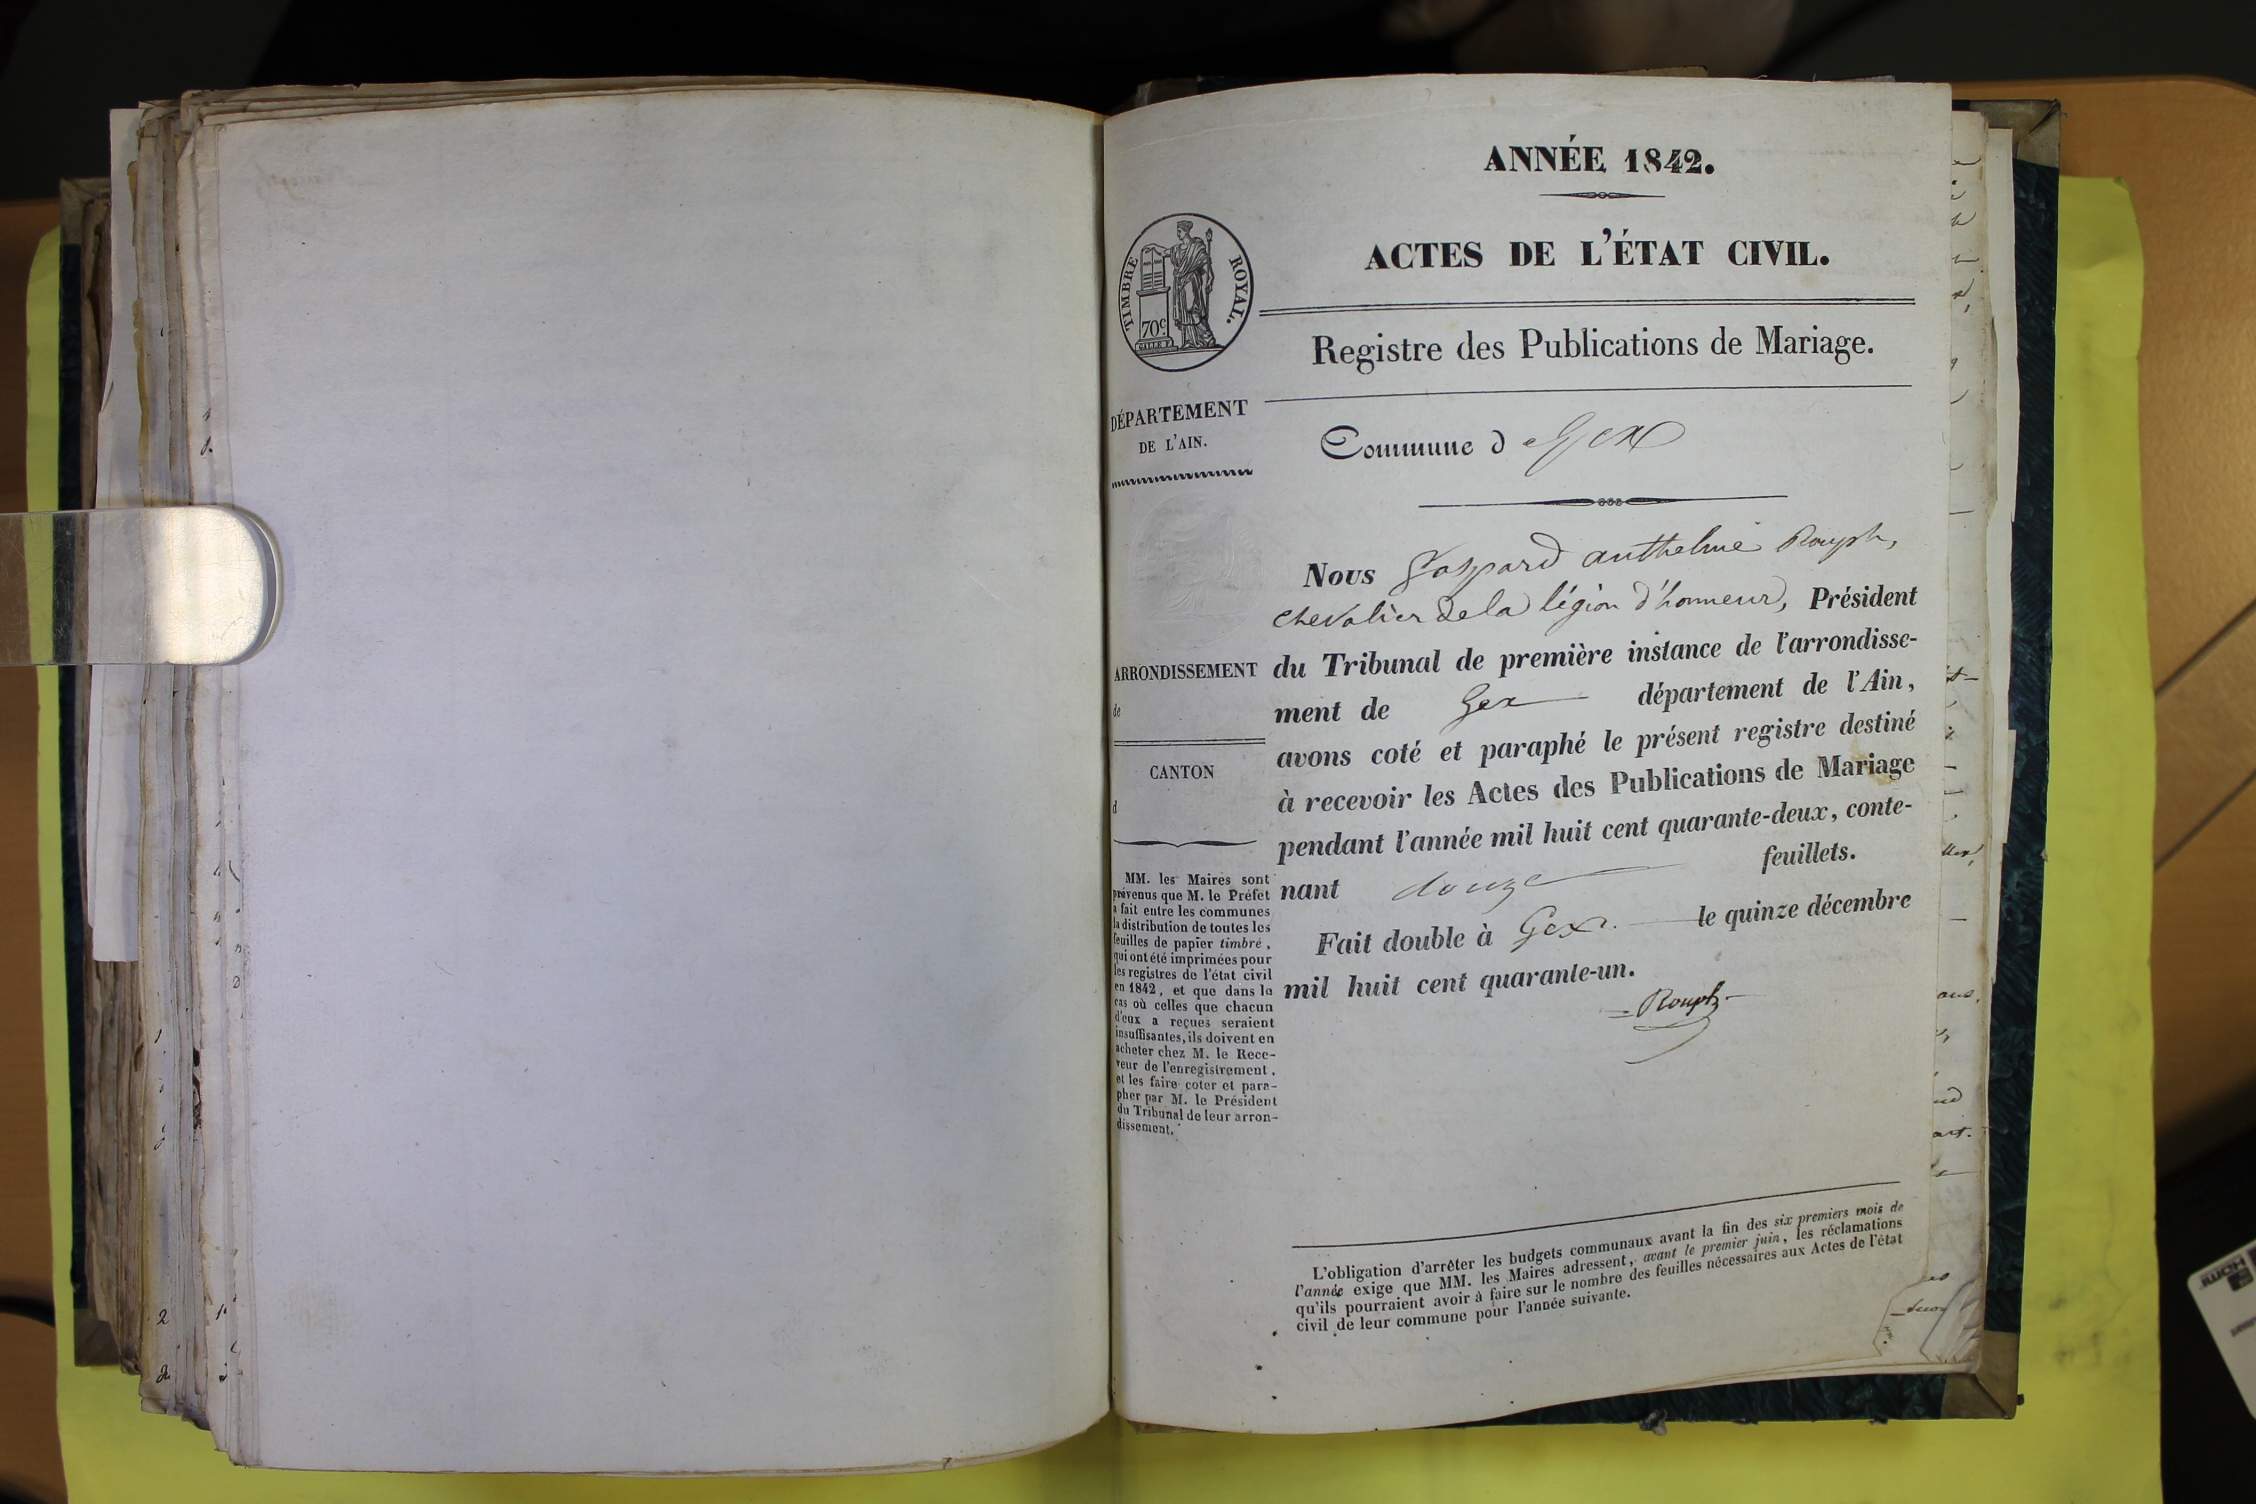 ANNÉE 1842.
ACTES DE L'ÉTAT CIVIL.
TIMBRE ROYAL.
70c.
GALLE F.
Registre des Publications de Mariage.
DÉPARTEMENT
DE L'AIN.
Commune d e Gex
Nous Gaspard anthelme Rouph,
chevalier de la légion d'honneur, Président
du Tribunal de première instance de l'arrondisse-
ment de Gex département de l'Ain,
avons coté et paraphé le présent registre destiné
à recevoir les Actes des Publications de Mariage
pendant l'année mil huit cent quarante-deux, conte-
nant douze feuillets.
Fait double à Gex. le quinze décembre
mil huit cent quarante-un.
Rouph
ARRONDISSEMENT
de
CANTON
d
MM. les Maires sont
prévenus que M. le Préfet
a fait entre les communes
la distribution de toutes les
feuilles de papier timbré,
qui ont été imprimées pour
les registres de l'état civil
en 1842, et que dans le
cas où celles que chacun
d'eux a reçues seraient
insuffisantes, ils doivent en
acheter chez M. le Rece-
veur de l'enregistrement,
et les faire coter et para-
pher par M. le Président
du Tribunal de leur arron-
dissement.
L'obligation d'arrêter les budgets communaux avant la fin des six premiers mois de
l'année exige que MM. les Maires adressent, avant le premier juin, les réclamations
qu'ils pourraient avoir à faire sur le nombre des feuilles nécessaires aux Actes de l'état
civil de leur commune pour l'année suivante.